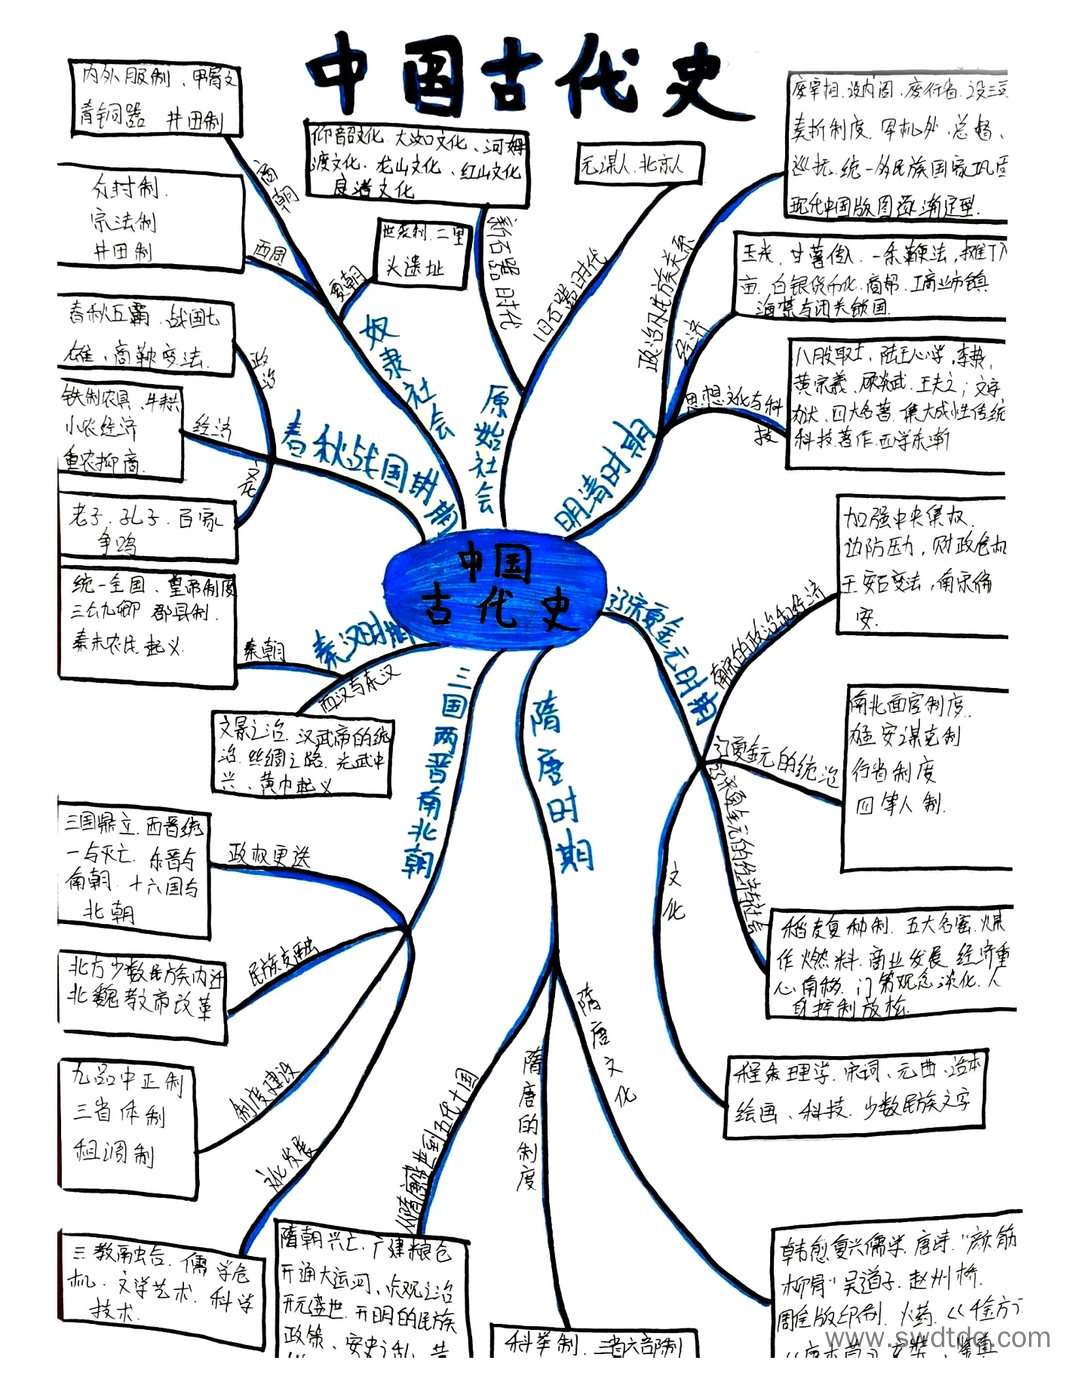 中国古代史
内外服制、甲骨文
青铜器 井田制
商朝
分封制.
宗法制
井田制
西周
世袭制.二里
头遗址
夏朝
奴隶社会
仰韶文化 大汶口文化、河姆
渡文化.龙山文化、红山文化
良渚文化
新石器时代
元谋人.北京人
旧石器时代
原始社会
春秋五霸.战国七
雄、商鞅变法.
政治
铁制农具、牛耕
小农经济
重农抑商.
经济
老子.孔子.百家
争鸣
文化
春秋战国时期
统一全国、皇帝制度
三公九卿 郡县制.
秦末农民起义.
秦朝
文景之治.汉武帝的统
治.丝绸之路.光武中
兴、黄巾起义
西汉与东汉
秦汉时期
中国
古代史
三国鼎立.西晋统
一与灭亡.东晋与
南朝.十六国与
北朝
政权更迭
北方少数民族内迁
北魏孝文帝改革
民族交融
九品中正制
三省体制
租调制
制度建设
三教融合.儒学危
机.文学艺术.科学
技术.
文化发展
三国两晋南北朝
隋朝兴亡.广建粮仓
开通大运河、贞观之治
开元盛世.开明的民族
政策、安史之乱、黄
从隋唐盛世到五代十国
科举制.三省六部制
隋唐的制度
韩愈复兴儒学.唐诗."颜筋
柳骨"吴道子.赵州桥.
雕版印刷.火药.《千金方》
隋唐文化
隋唐时期
废宰相.设内阁.废行省.设三司
奏折制度.军机处.总督、
巡抚.统一多民族国家巩固
现代中国版图逐渐定型.
政治及民族关系
玉米、甘薯传入.一条鞭法,摊丁入
亩.白银货币化.商帮.工商业市镇
海禁与闭关锁国.
经济
八股取士,陆王心学,李贽,
黄宗羲、顾炎武.王夫之;文字
狱.四大名著.集大成性传统
科技著作.西学东渐
思想文化与科
技
明清时期
加强中央集权.
边防压力,财政危机
王安石变法,南宋偏
安.
两宋的政治和经济
南北面官制度.
猛安谋克制
行省制度
四等人制.
辽夏金元的统治
稻麦复种制.五大名窑.煤
作燃料.商业发展 经济重
心南移.门第观念淡化.人
身控制放松.
辽宋夏金元的经济与社会
程朱理学.宋词、元曲.话本
绘画、科技.少数民族文字
文化
辽宋夏金元时期
www.swdtdq.com